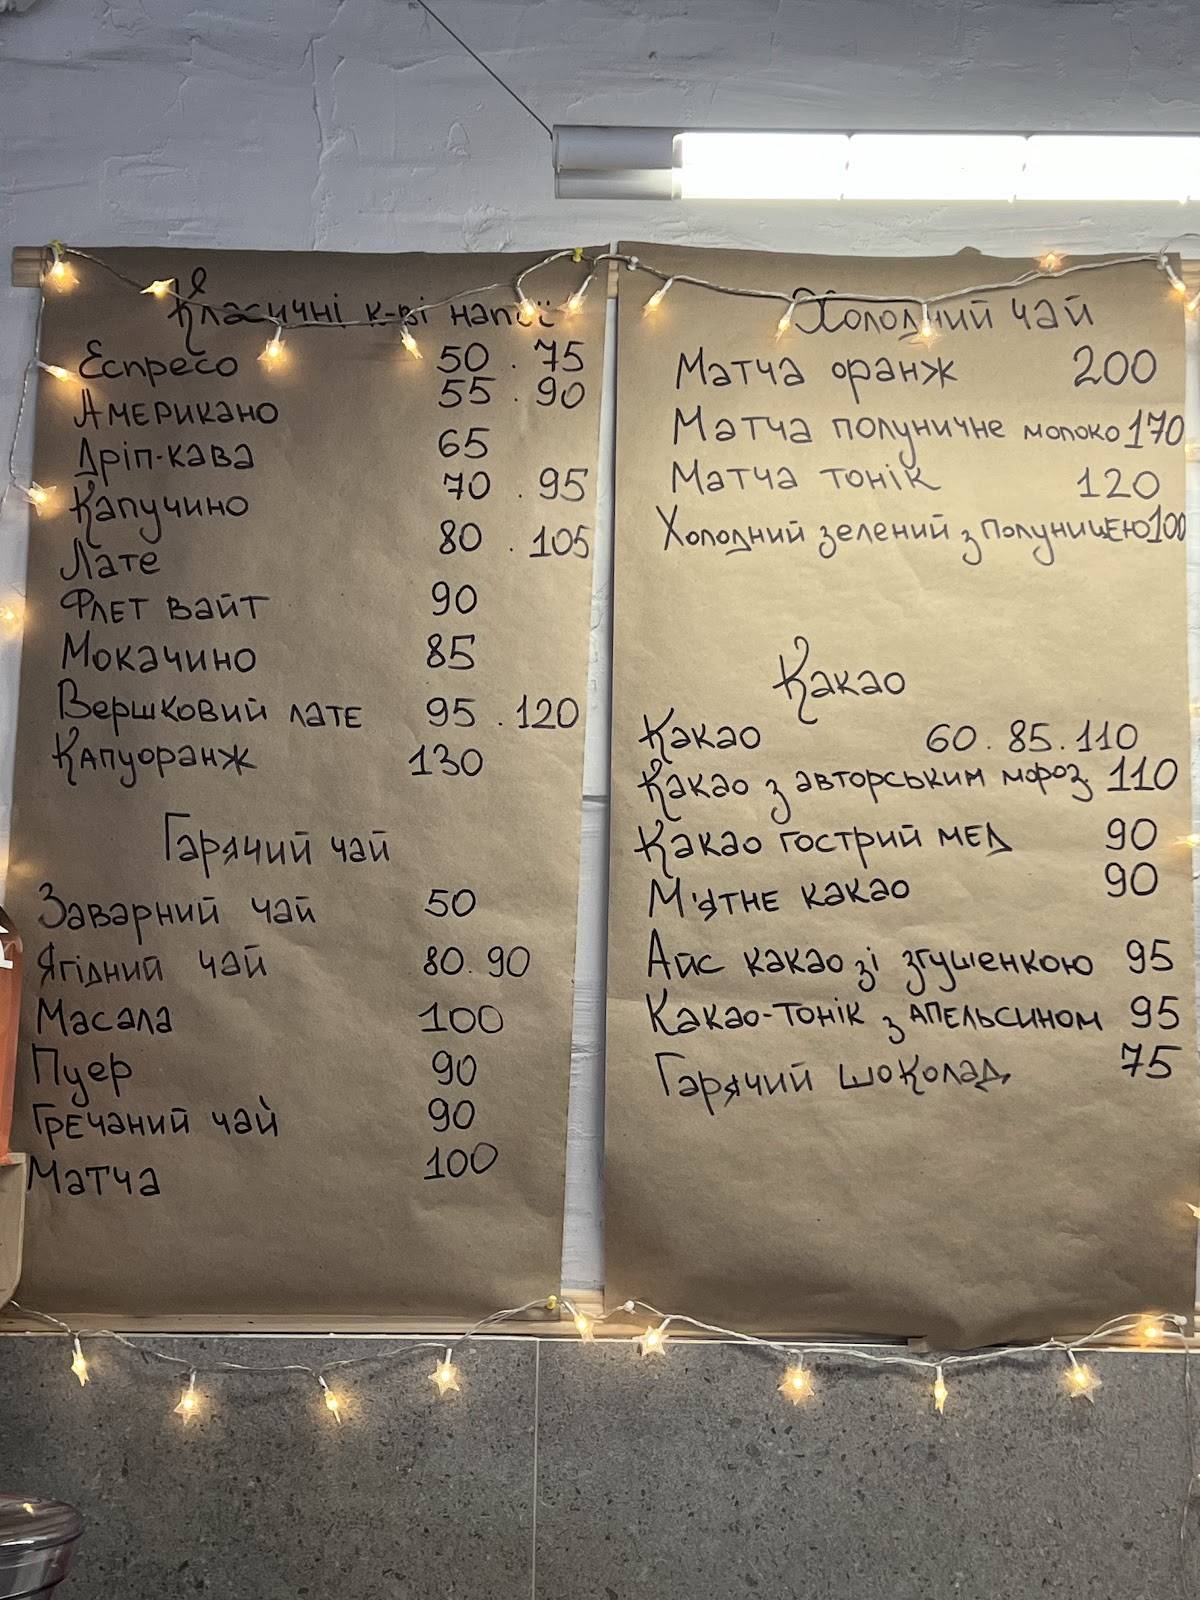 Класичні к-ві напої
Еспресо 50 . 75
Американо 55 . 90
Дріп-кава 65
Капучино 70 . 95
Лате 80 . 105
Флет вайт 90
Мокачино 85
Вершковий лате 95 . 120
Капуоранж 130
Гарячий чай
Заварний чай 50
Ягідний чай 80. 90
Масала 100
Пуер 90
Гречаний чай 90
Матча 100
Холодний чай
Матча оранж 200
Матча полуничне молоко 170
Матча тонік 120
Холодний зелений з полуницею 100
Какао
Какао 60 . 85 . 110
Какао з авторським мороз. 110
Какао гострий мед 90
М'ятне какао 90
Айс какао зі згушенкою 95
Какао-тонік з апельсином 95
Гарячий шоколад 75